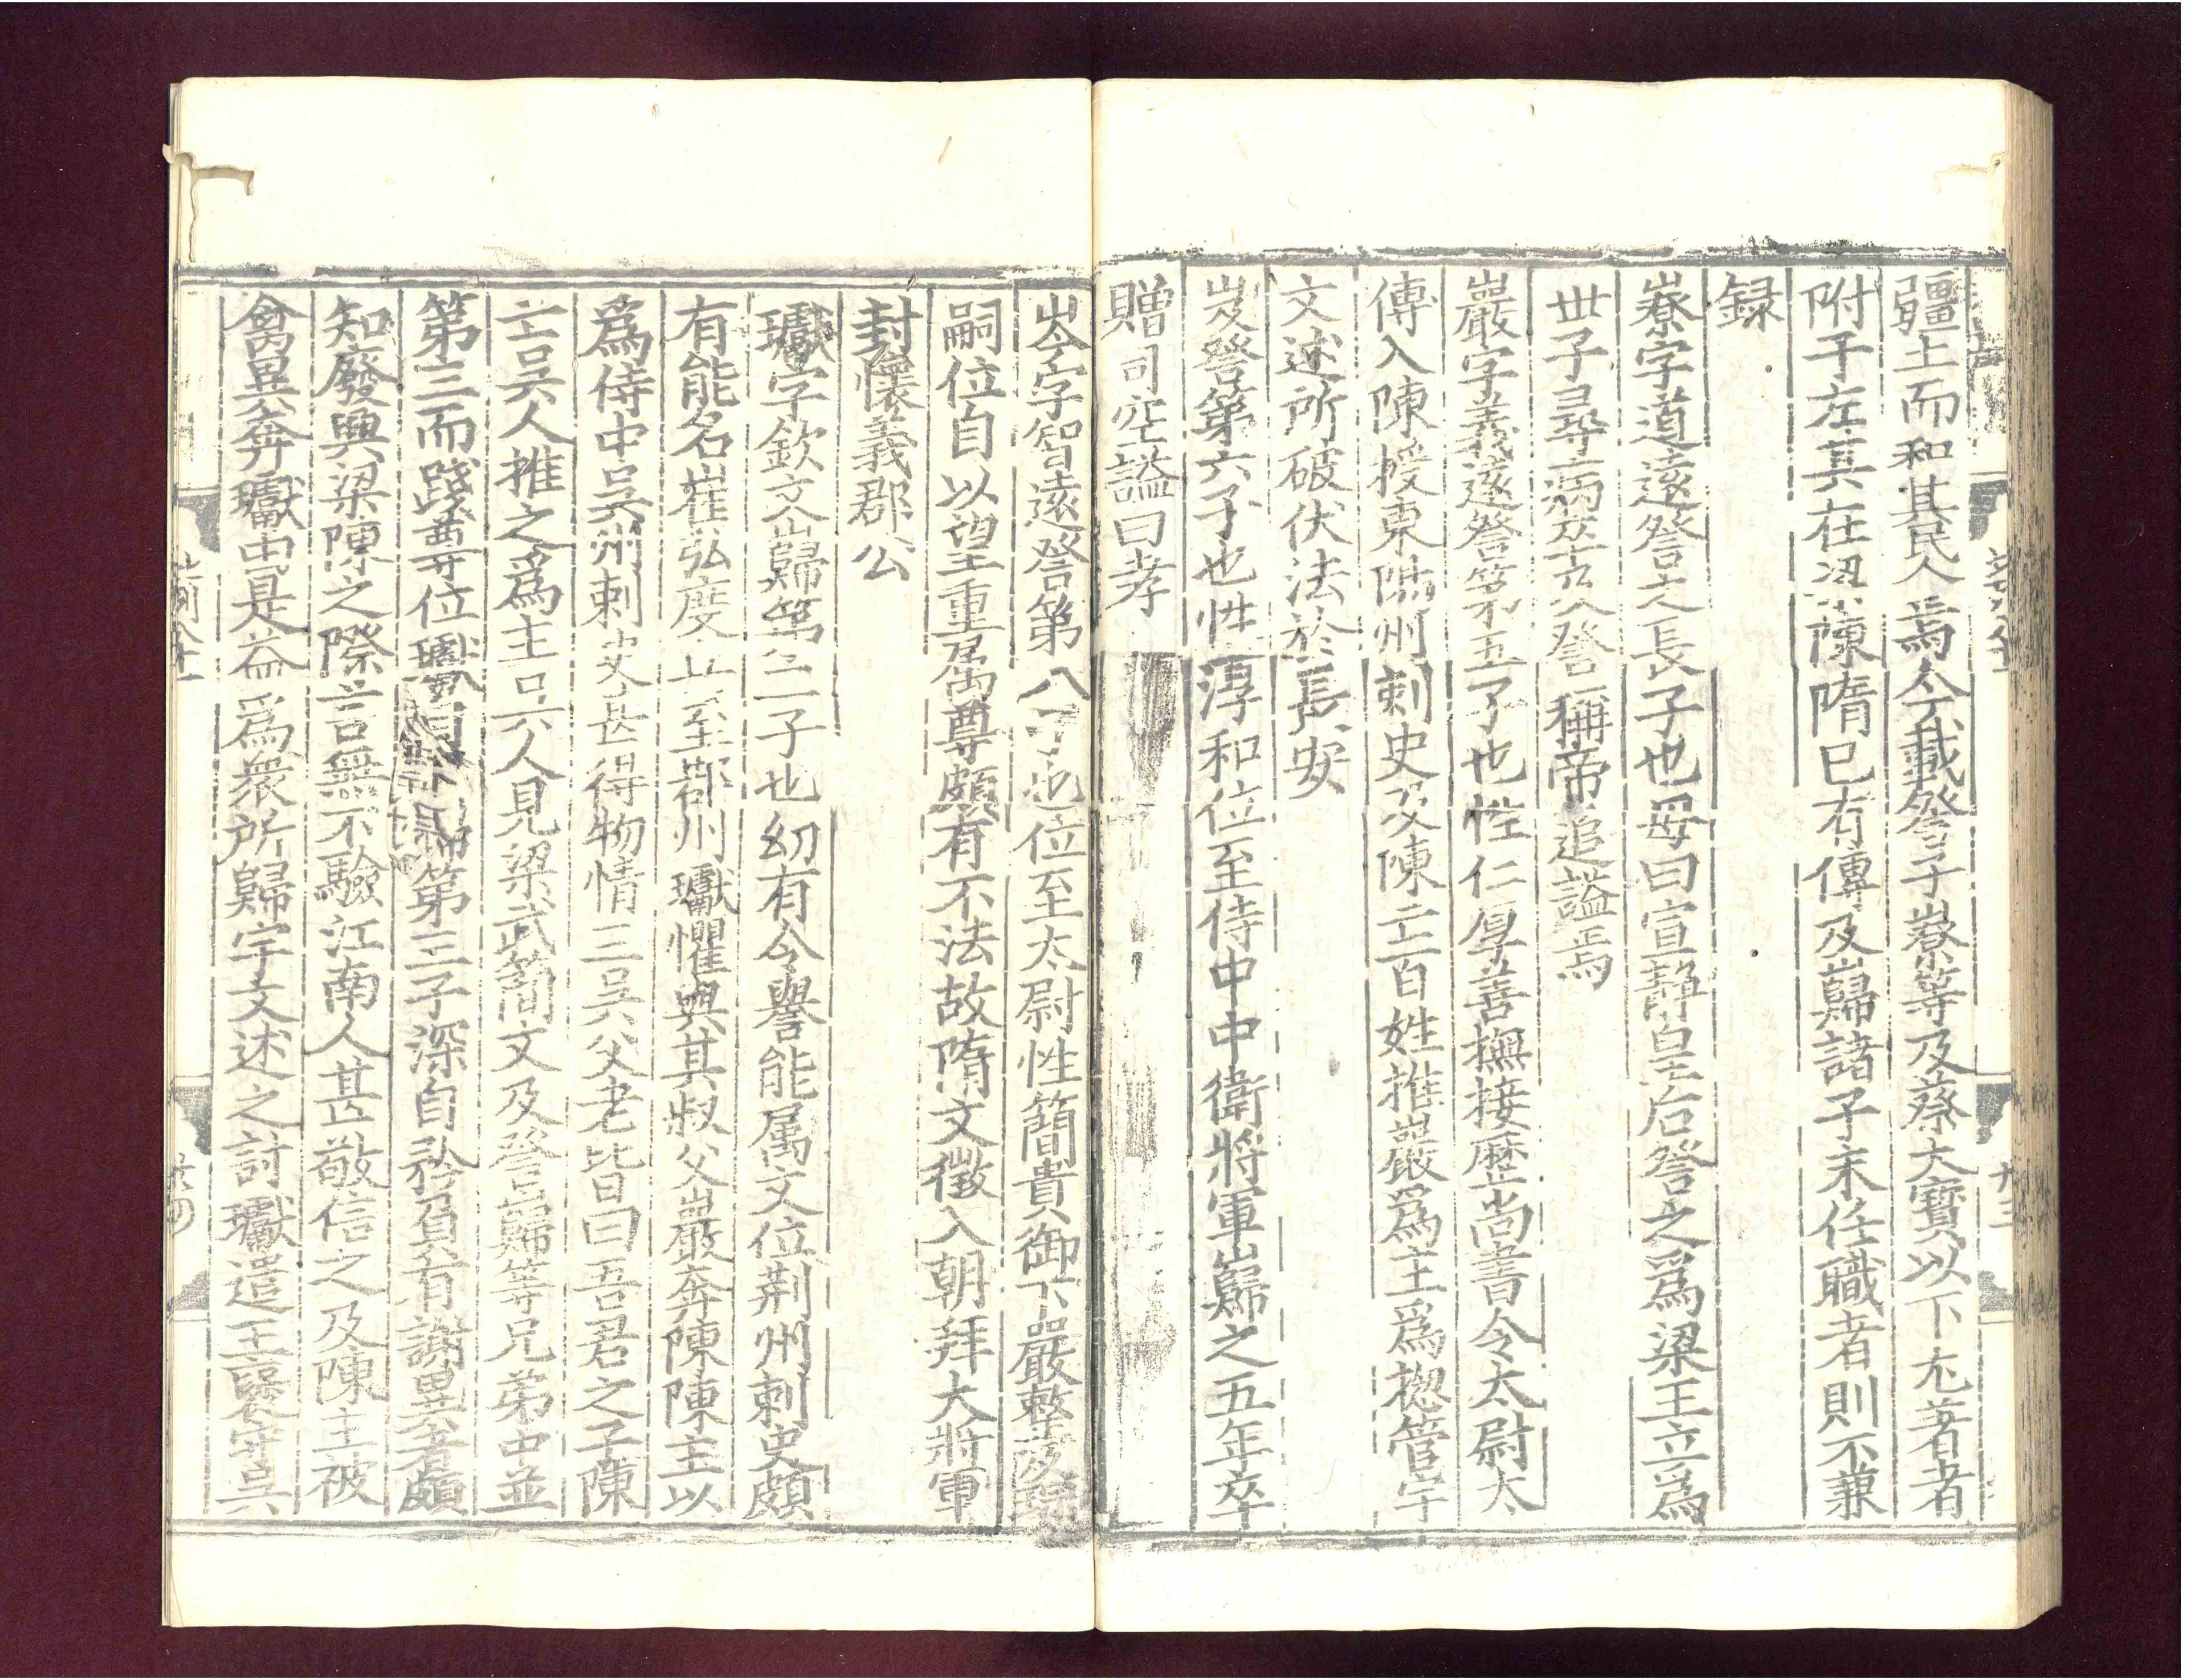 疆土而和其民人焉今載詧子嶚等及蔡大寶以下尤著者
附于左其在梁陳隋已有傳及巋諸子未任職者則不兼
録
嶚字道遠詧之長子也母曰宣靜皇后詧之爲梁王立爲
世子尋病卒及詧稱帝追謚焉
巖字義遠詧第五子也性仁厚善撫接歷尚書令太尉太
傅入陳授東揚州刺史及陳亡百姓推巖爲主爲揔管宇
文述所破伏法於長安
岌詧第六子也性淳和位至侍中中衛將軍巋之五年卒
贈司空謚曰孝
岑字智遠詧第八子也位至太尉性簡貴御下嚴整及琮
嗣位自以望重屬尊頗有不法故隋文徵入朝拜大將軍
封懷義郡公
瓛字欽文巋第三子也幼有令譽能属文位荆州刺史頗
有能名崔弘度兵至鄀州瓛懼與其叔父巖奔陳陳主以
爲侍中吳州刺史甚得物情三吳父老皆曰吾君之子陳
亡吳人推之爲主吳人見梁武簡文及詧巋等兄弟中並
第三而踐尊位瓛第三子深自矜負有謝異者頗
知廢興梁陳之際言無不驗江南人甚敬信之及陳主被
禽異奔瓛由是益爲衆所歸宇文述之討瓛遣王褒守吳